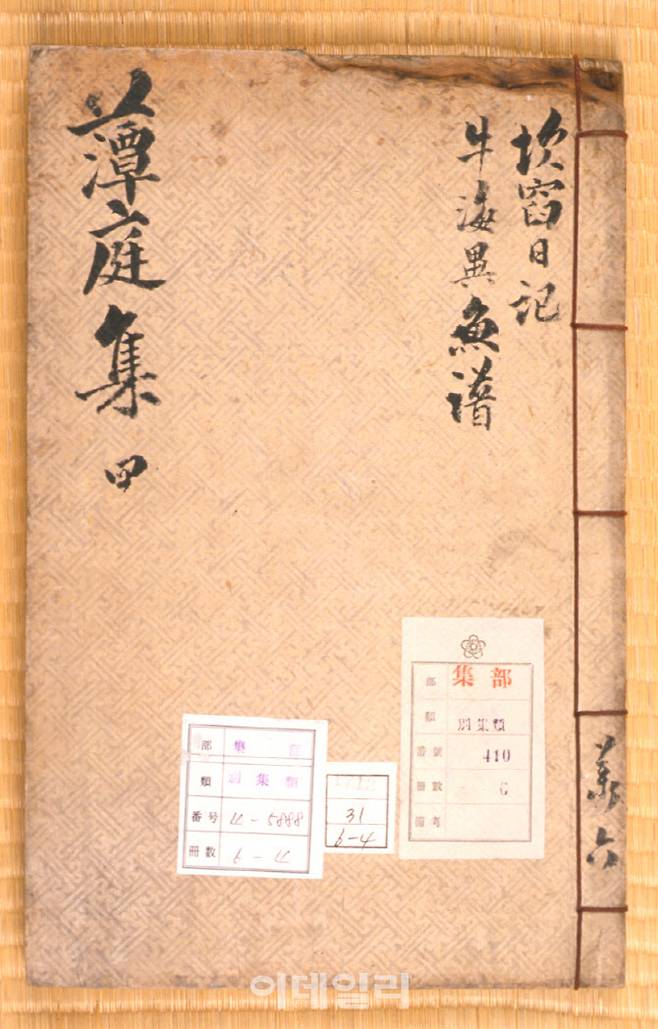 坎窞日記
牛海異魚譜
藫庭集 甲
六
部 集部
類 別集類
番號 410
冊數 6
備考
部 集部
類 別集類
番号 4-5888
冊數 6-4
31
6-4
이데일리